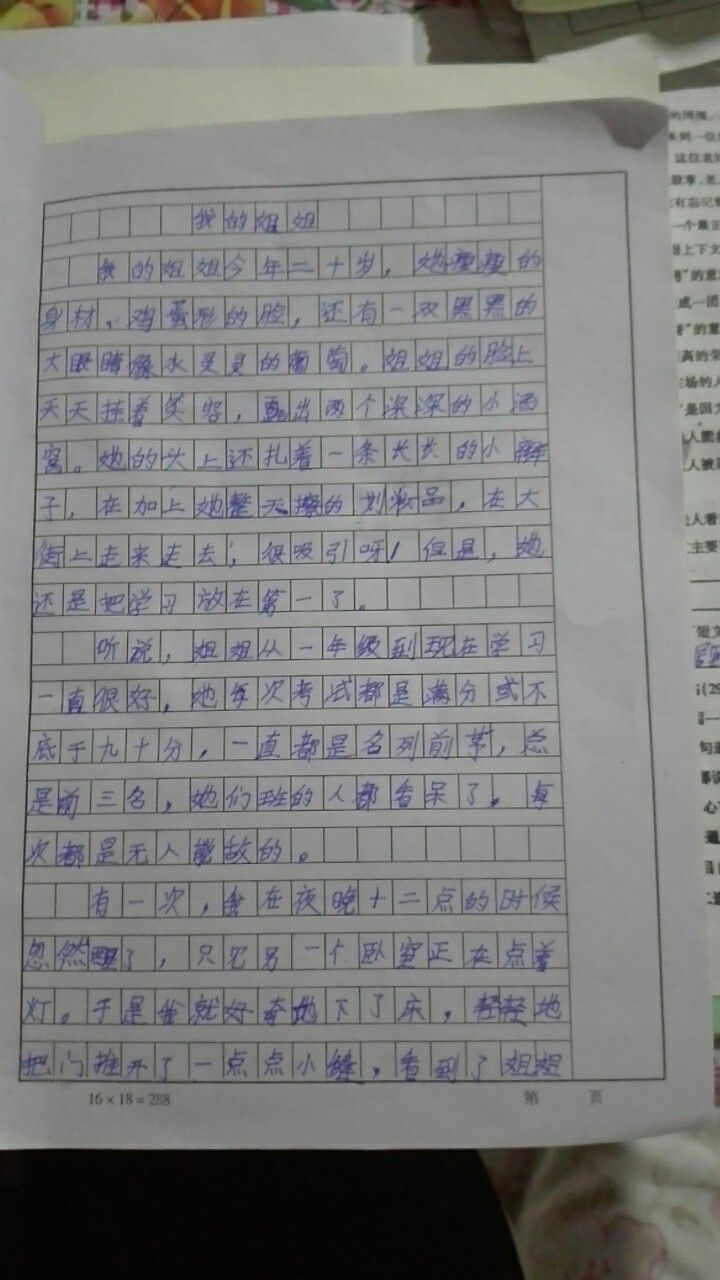 我的姐姐
我的姐姐今年二十岁，她瘦瘦的
身材、鸡蛋形的脸，还有一双黑黑的
大眼睛像水灵灵的葡萄。姐姐的脸上
天天挂着笑容，露出两个深深的小酒
窝。她的头上还扎着一条长长的小辫
子，在加上她整天擦的划妆品，在大
街上走来走去，很吸引呀！但是，她
还是把学习放在第一了。
听说，姐姐从一年级到现在学习
一直很好，她每次考试都是满分或不
底于九十分，一直都是名列前茅，总
是前三名，她们班的人都看呆了。每
次都是无人能敌的。
有一次，我在夜晚十二点的时候
忽然醒了，只见另一个卧室正在点着
灯。于是我就好奇地下了床，轻轻地
把门推开了一点点小缝，看到了姐姐
16×18=288
第 页
的周围，
来到一位
这位老
鼓掌，老
有忘记
一个最正
上下文
的意
成一团
的意
高的
主场的人
是因为
人能
人被
人看
主要
(29
句
心
通